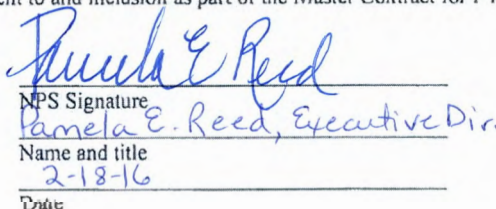 to and inclusion as part of the Master Contract for
Pamela E Reed
NPS Signature
Pamela E. Reed, Executive Dir.
Name and title
2-18-16
Date